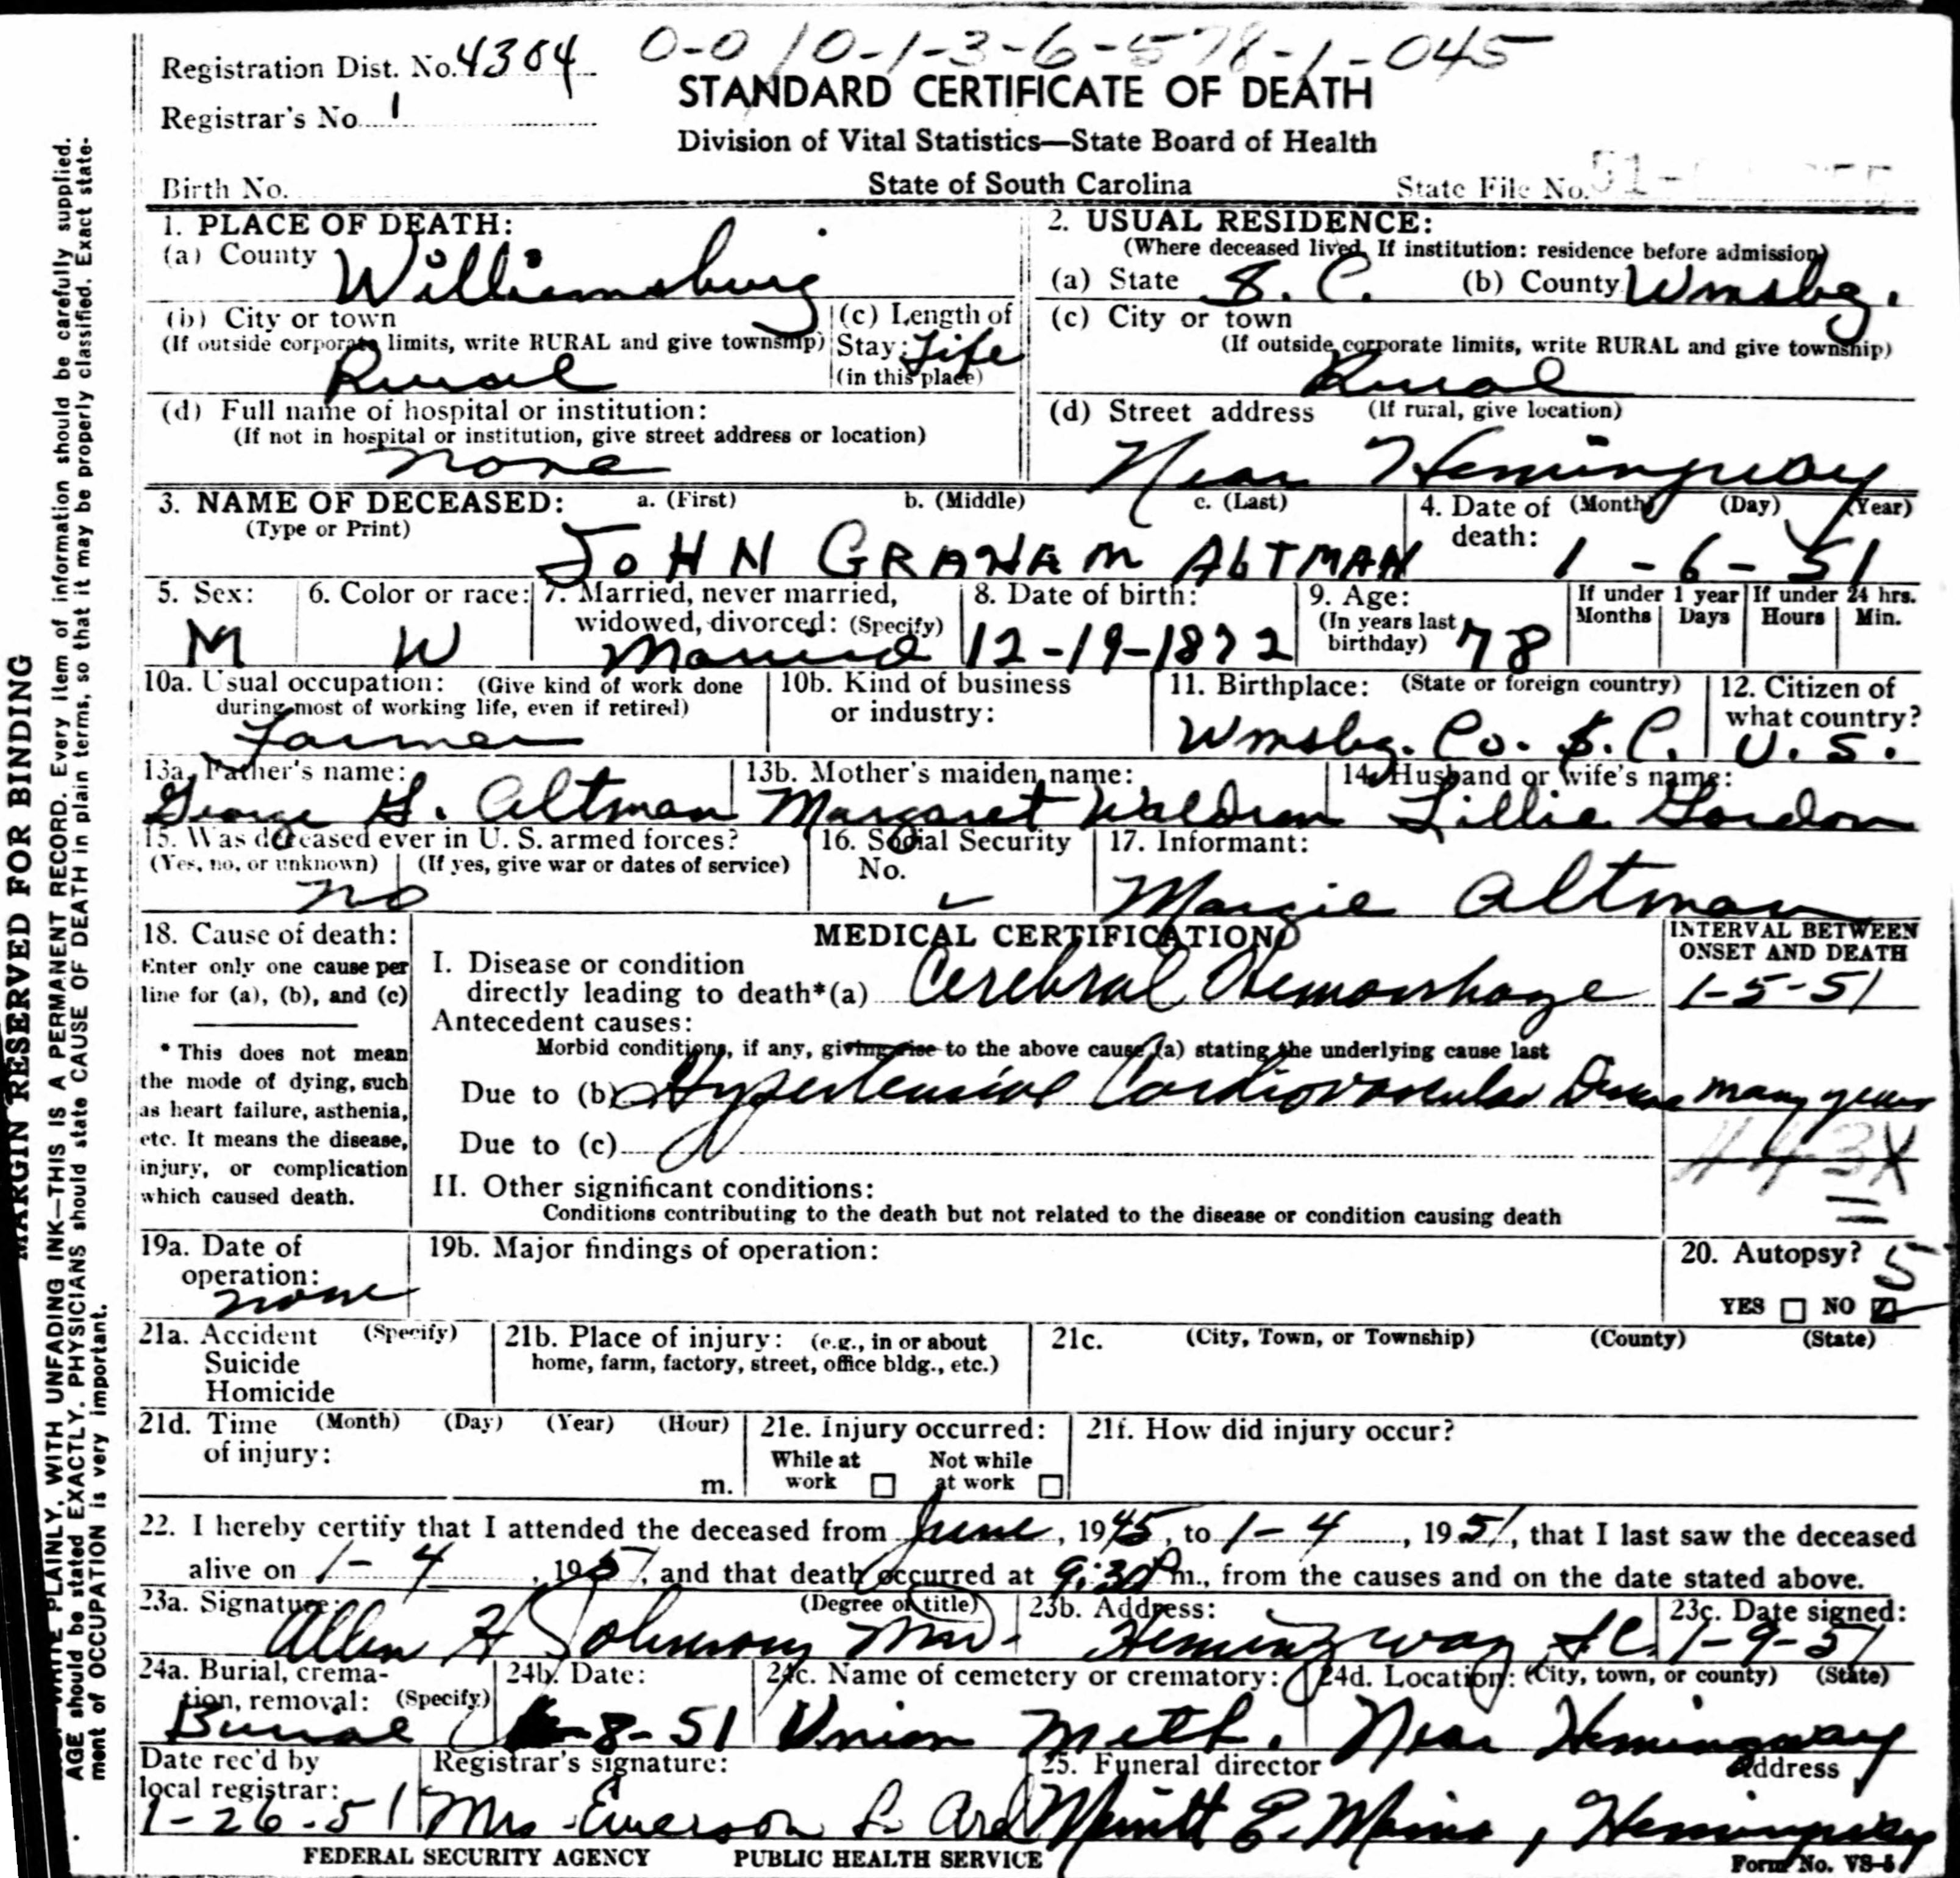 Registration Dist. No. 4304 0-0 10-1-3-6-578-1-045
STANDARD CERTIFICATE OF DEATH
Registrar's No. 1
Division of Vital Statistics—State Board of Health
Birth No. State of South Carolina State File No. 51-
1. PLACE OF DEATH:
(a) County Williamsburg
2. USUAL RESIDENCE:
(Where deceased lived. If institution: residence before admission)
(a) State S. C. (b) County Wmsbg.
(b) City or town
(If outside corporate limits, write RURAL and give township)
Rural
(c) Length of
Stay: Life
(in this place)
(c) City or town
(If outside corporate limits, write RURAL and give township)
Rural
(d) Full name of hospital or institution:
(If not in hospital or institution, give street address or location)
None
(d) Street address (If rural, give location)
Near Hemingway
3. NAME OF DECEASED: a. (First) b. (Middle) c. (Last)
(Type or Print)
JOHN GRAHAM ALTMAN
4. Date of (Month) (Day) (Year)
death: 1 - 6 - 51
5. Sex:
M
6. Color or race:
W
7. Married, never married,
widowed, divorced: (Specify)
Married
8. Date of birth:
12-19-1872
9. Age:
(In years last
birthday) 78
If under 1 year
Months Days
If under 24 hrs.
Hours Min.
10a. Usual occupation: (Give kind of work done
during most of working life, even if retired)
Farmer
10b. Kind of business
or industry:
11. Birthplace: (State or foreign country)
Wmsbg. Co. S. C.
12. Citizen of
what country?
U. S.
13a. Father's name:
George G. Altman
13b. Mother's maiden name:
Margaret Waldren
14. Husband or wife's name:
Lillie Gordon
15. Was deceased ever in U. S. armed forces?
(Yes, no, or unknown) (If yes, give war or dates of service)
no
16. Social Security
No.
17. Informant:
Margie Altman
18. Cause of death:
Enter only one cause per
line for (a), (b), and (c)
* This does not mean
the mode of dying, such
as heart failure, asthenia,
etc. It means the disease,
injury, or complication
which caused death.
MEDICAL CERTIFICATION
I. Disease or condition
directly leading to death*(a) Cerebral Hemorrhage
Antecedent causes:
Morbid conditions, if any, giving rise to the above cause (a) stating the underlying cause last
Due to (b) Hypertensive Cardiovascular Disease
Due to (c)
II. Other significant conditions:
Conditions contributing to the death but not related to the disease or condition causing death
INTERVAL BETWEEN
ONSET AND DEATH
1-5-51
many years
443X
19a. Date of
operation:
none
19b. Major findings of operation:
20. Autopsy? 5
YES NO
21a. Accident (Specify)
Suicide
Homicide
21b. Place of injury: (e.g., in or about
home, farm, factory, street, office bldg., etc.)
21c. (City, Town, or Township) (County) (State)
21d. Time (Month) (Day) (Year) (Hour)
of injury:
m.
21e. Injury occurred:
While at Not while
work at work
21f. How did injury occur?
22. I hereby certify that I attended the deceased from June, 1945, to 1-4, 1951, that I last saw the deceased
alive on 1-4, 1951, and that death occurred at 9:30 P m., from the causes and on the date stated above.
23a. Signature: (Degree or title)
Allen H Johnson MD.
23b. Address:
Hemingway S.C.
23c. Date signed:
1-9-51
24a. Burial, crema-
tion, removal: (Specify)
Burial
24b. Date:
-8-51
24c. Name of cemetery or crematory:
Union Meth.
24d. Location: (City, town, or county) (State)
Near Hemingway
Date rec'd by
local registrar:
1-26-51
Registrar's signature:
Mrs. Emerson L. Ard
25. Funeral director Address
Merritt E. Mims, Hemingway
FEDERAL SECURITY AGENCY PUBLIC HEALTH SERVICE Form No. VS-5
MARGIN RESERVED FOR BINDING
WRITE PLAINLY, WITH UNFADING INK—THIS IS A PERMANENT RECORD. Every item of information should be carefully supplied.
AGE should be stated EXACTLY. PHYSICIANS should state CAUSE OF DEATH in plain terms, so that it may be properly classified. Exact state-
ment of OCCUPATION is very important.